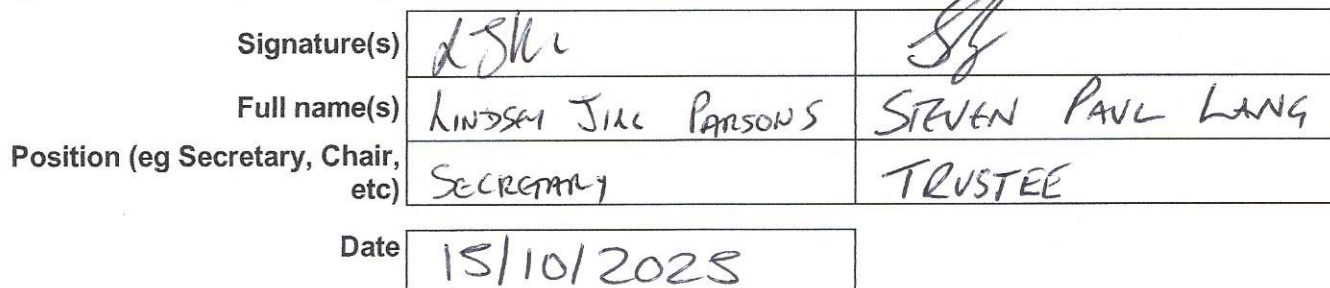 Signature(s)
Full name(s) LINDSEY JILL PARSONS STEVEN PAUL LANG
Position (eg Secretary, Chair,
etc) SECRETARY TRUSTEE
Date 15/10/2025